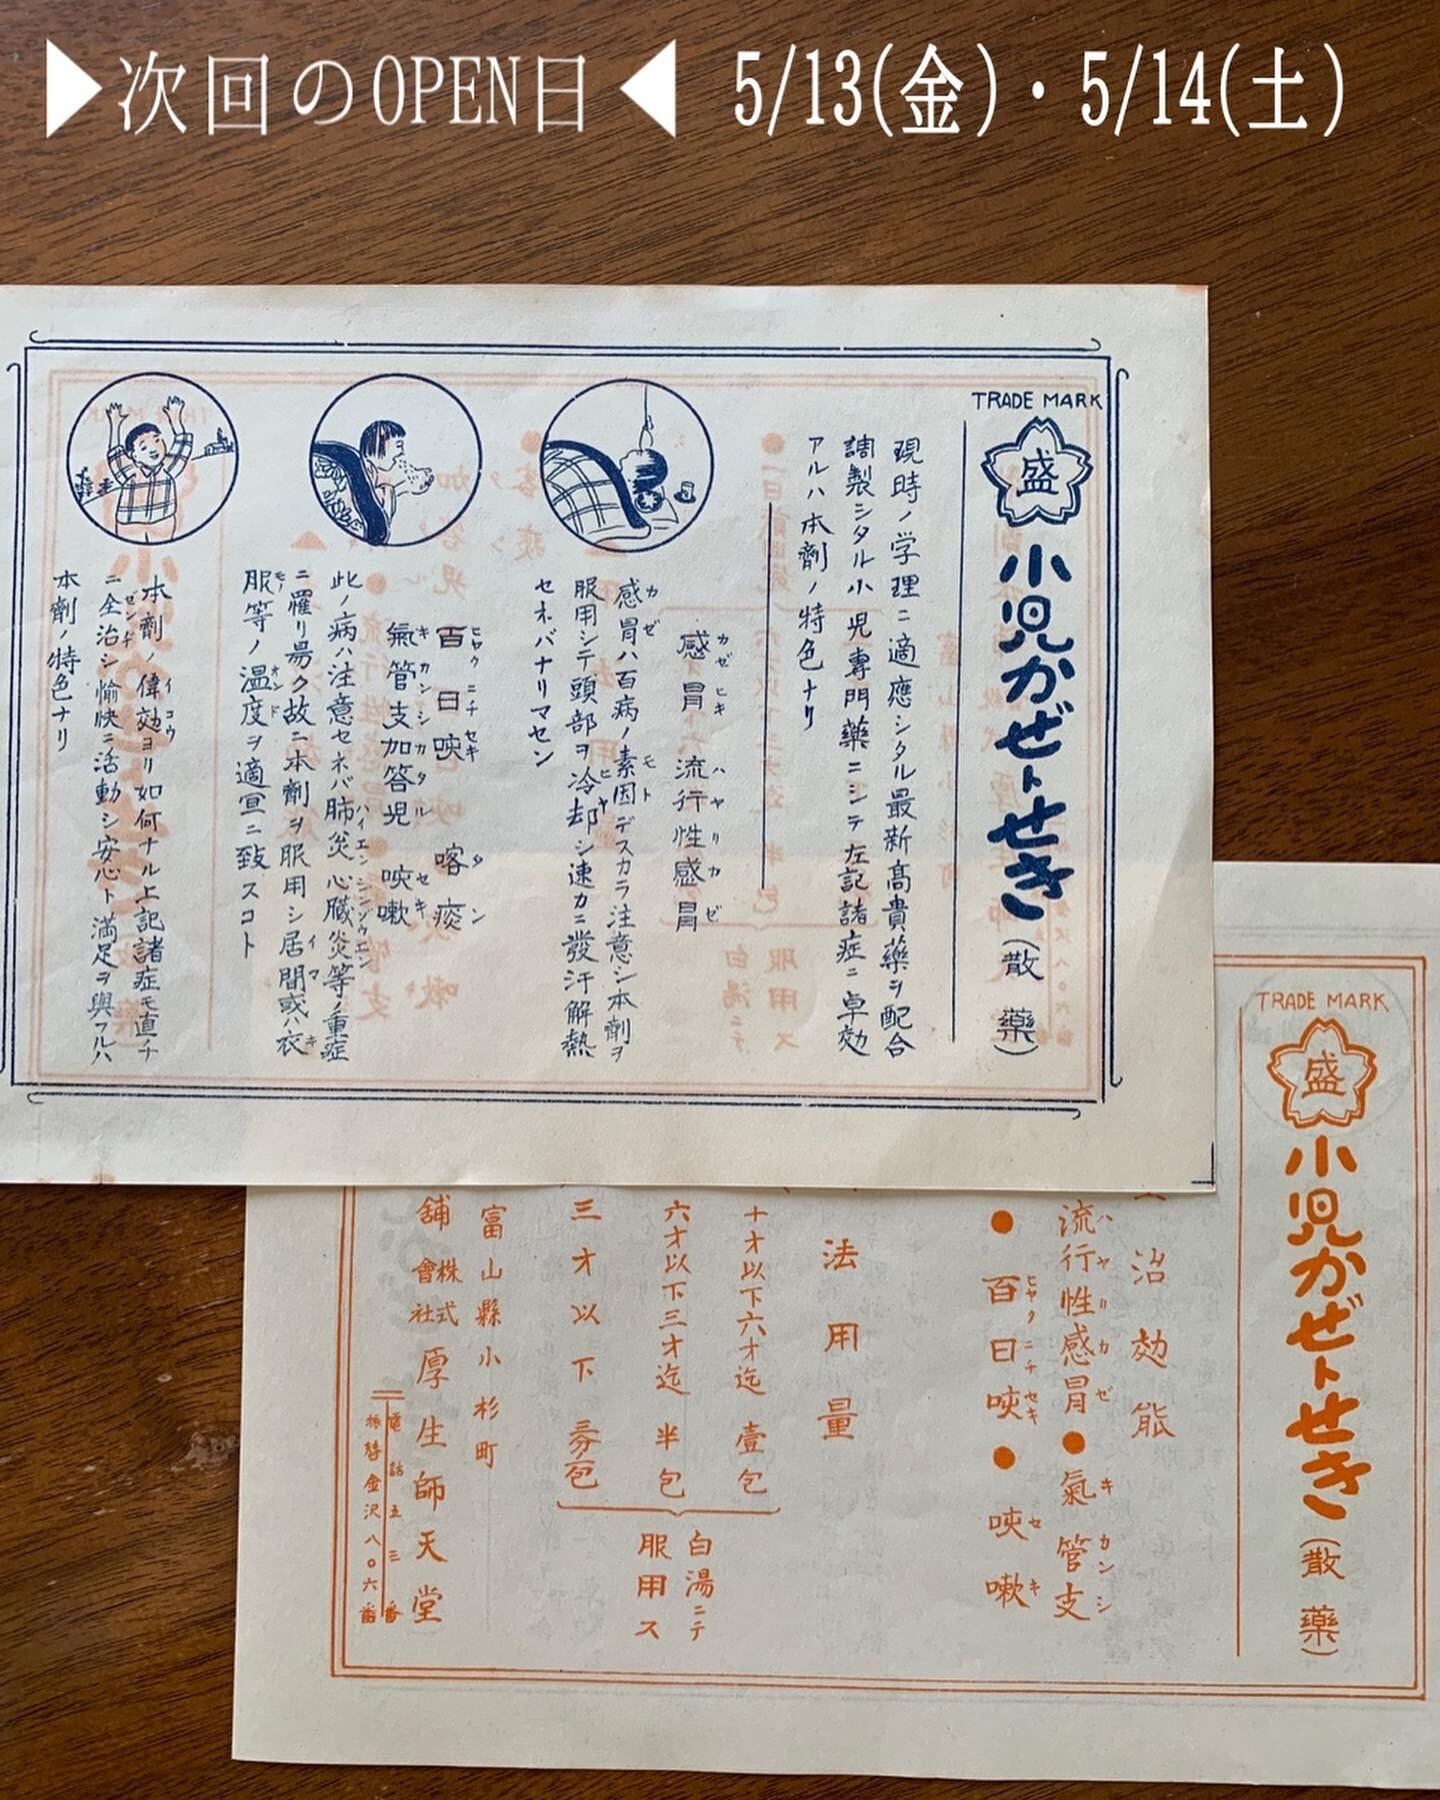 ▶次回のOPEN日◀ 5/13(金)・5/14(土)
TRADE MARK
盛
小児かぜトせき(散薬)
現時ノ学理ニ適應シタル最新高貴薬ヲ配合
調製シタル小児専門薬ニシテ左記諸症ニ卓効
アルハ本劑ノ特色ナリ
感冒 流行性感冒
カゼヒキ ハヤリカゼ
感冒ハ百病ノ素因デスカラ注意シ本劑ヲ
カゼ モト
服用シテ頭部ヲ冷却シ速カニ發汗解熱
ヒヤ
セネバナリマセン
百日咳 喀痰
ヒヤクニチセキ タン
氣管支加答児 咳嗽
キカンシカタル セキ
此ノ病ハ注意セネバ肺炎心臓炎等ノ重症
ハイエンシンゾウエン
ニ罹リ易ク故ニ本劑ヲ服用シ居間或ハ衣
イマ キ
服等ノ温度ヲ適宜ニ致スコト
モノ オンド
本劑ノ偉効ヨリ如何ナル上記諸症モ直チ
イコウ
ニ全治シ愉快ニ活動シ安心ト満足ヲ與フルハ
ゼンチ
本劑ノ特色ナリ
TRADE MARK
盛
小児かぜトせき(散薬)
治効能
流行性感冒●氣管支
ハヤリカゼ キカンシ
●百日咳●咳嗽
ヒヤクニチセキ セキ
法用量
十才以下六才迄 壹包
六才以下三才迄 半包
三才以下
白湯ニテ
服用ス
富山縣小杉町
舗 株式會社 厚生師天堂
電話五三番
振替金沢八〇六番